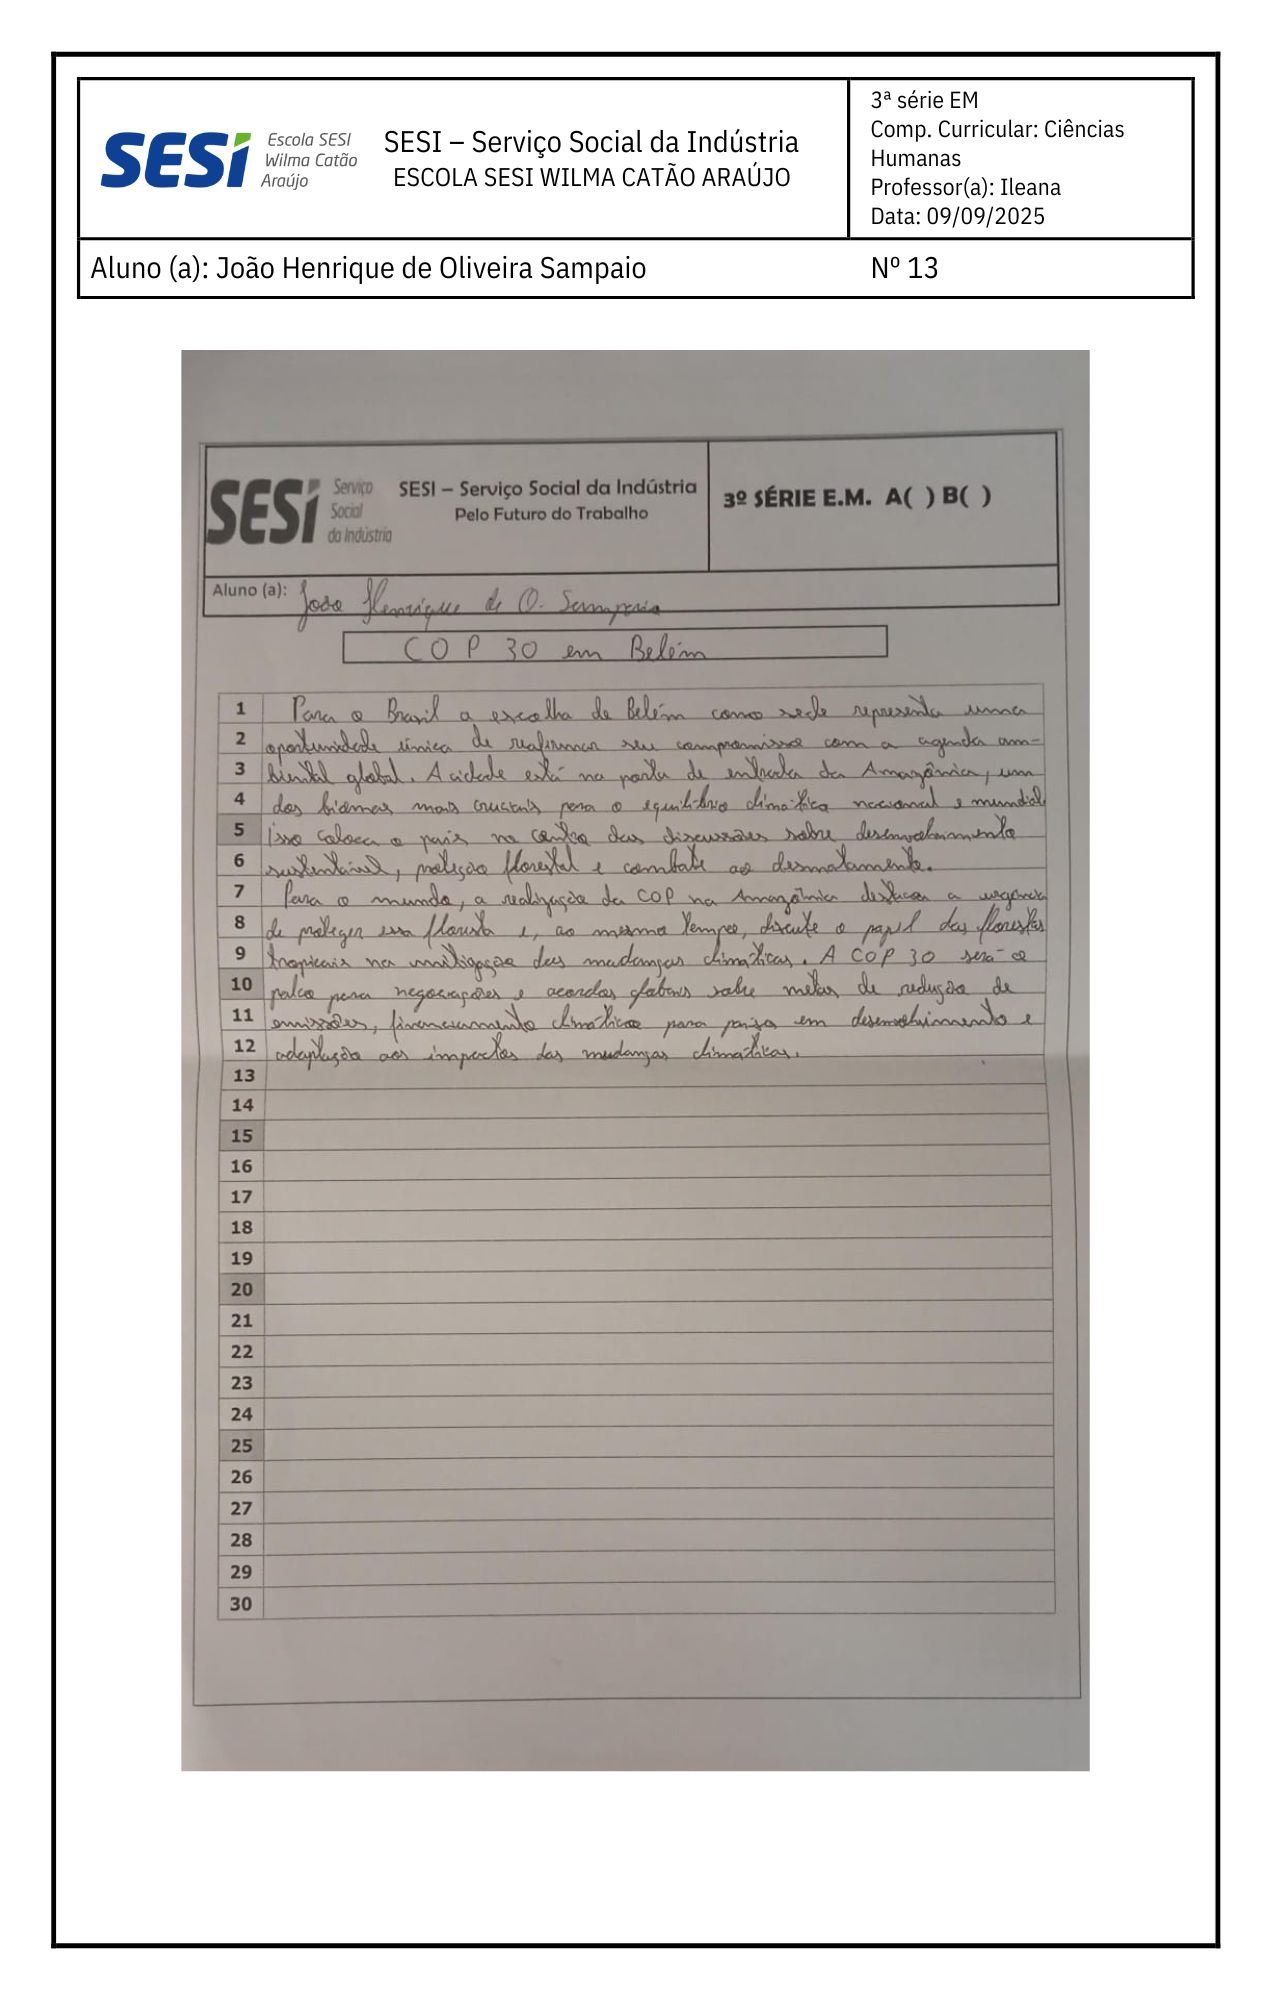 SESI
Escola SESI
Wilma Catão
Araújo
SESI – Serviço Social da Indústria
ESCOLA SESI WILMA CATÃO ARAÚJO
3ª série EM
Comp. Curricular: Ciências
Humanas
Professor(a): Ileana
Data: 09/09/2025
Aluno (a): João Henrique de Oliveira Sampaio
Nº 13
SESI
Serviço
Social
da Indústria
SESI – Serviço Social da Indústria
Pelo Futuro do Trabalho
3º SÉRIE E.M. A( ) B( )
Aluno (a): João Henrique de O. Sampaio
COP 30 em Belém
1 Para o Brasil a escolha de Belém como sede representa uma
2 oportunidade única de reafirmar seu compromisso com a agenda am-
3 biental global. A cidade está na porta de entrada da Amazônica, um
4 dos biomas mais cruciais para o equilíbrio climático nacional e mundial
5 isso coloca o país no centro das discussões sobre desenvolvimento
6 sustentável, proteção florestal e combate ao desmatamento.
7 Para o mundo, a realização da COP na Amazônica destaca a urgência
8 de proteger essa floresta e, ao mesmo tempo, discute o papel das florestas
9 tropicais na mitigação das mudanças climáticas. A COP 30 será o
10 palco para negociações e acordos globais sobre metas de redução de
11 emissões, financiamento climático para países em desenvolvimento e
12 adaptação aos impactos das mudanças climáticas.
13
14
15
16
17
18
19
20
21
22
23
24
25
26
27
28
29
30